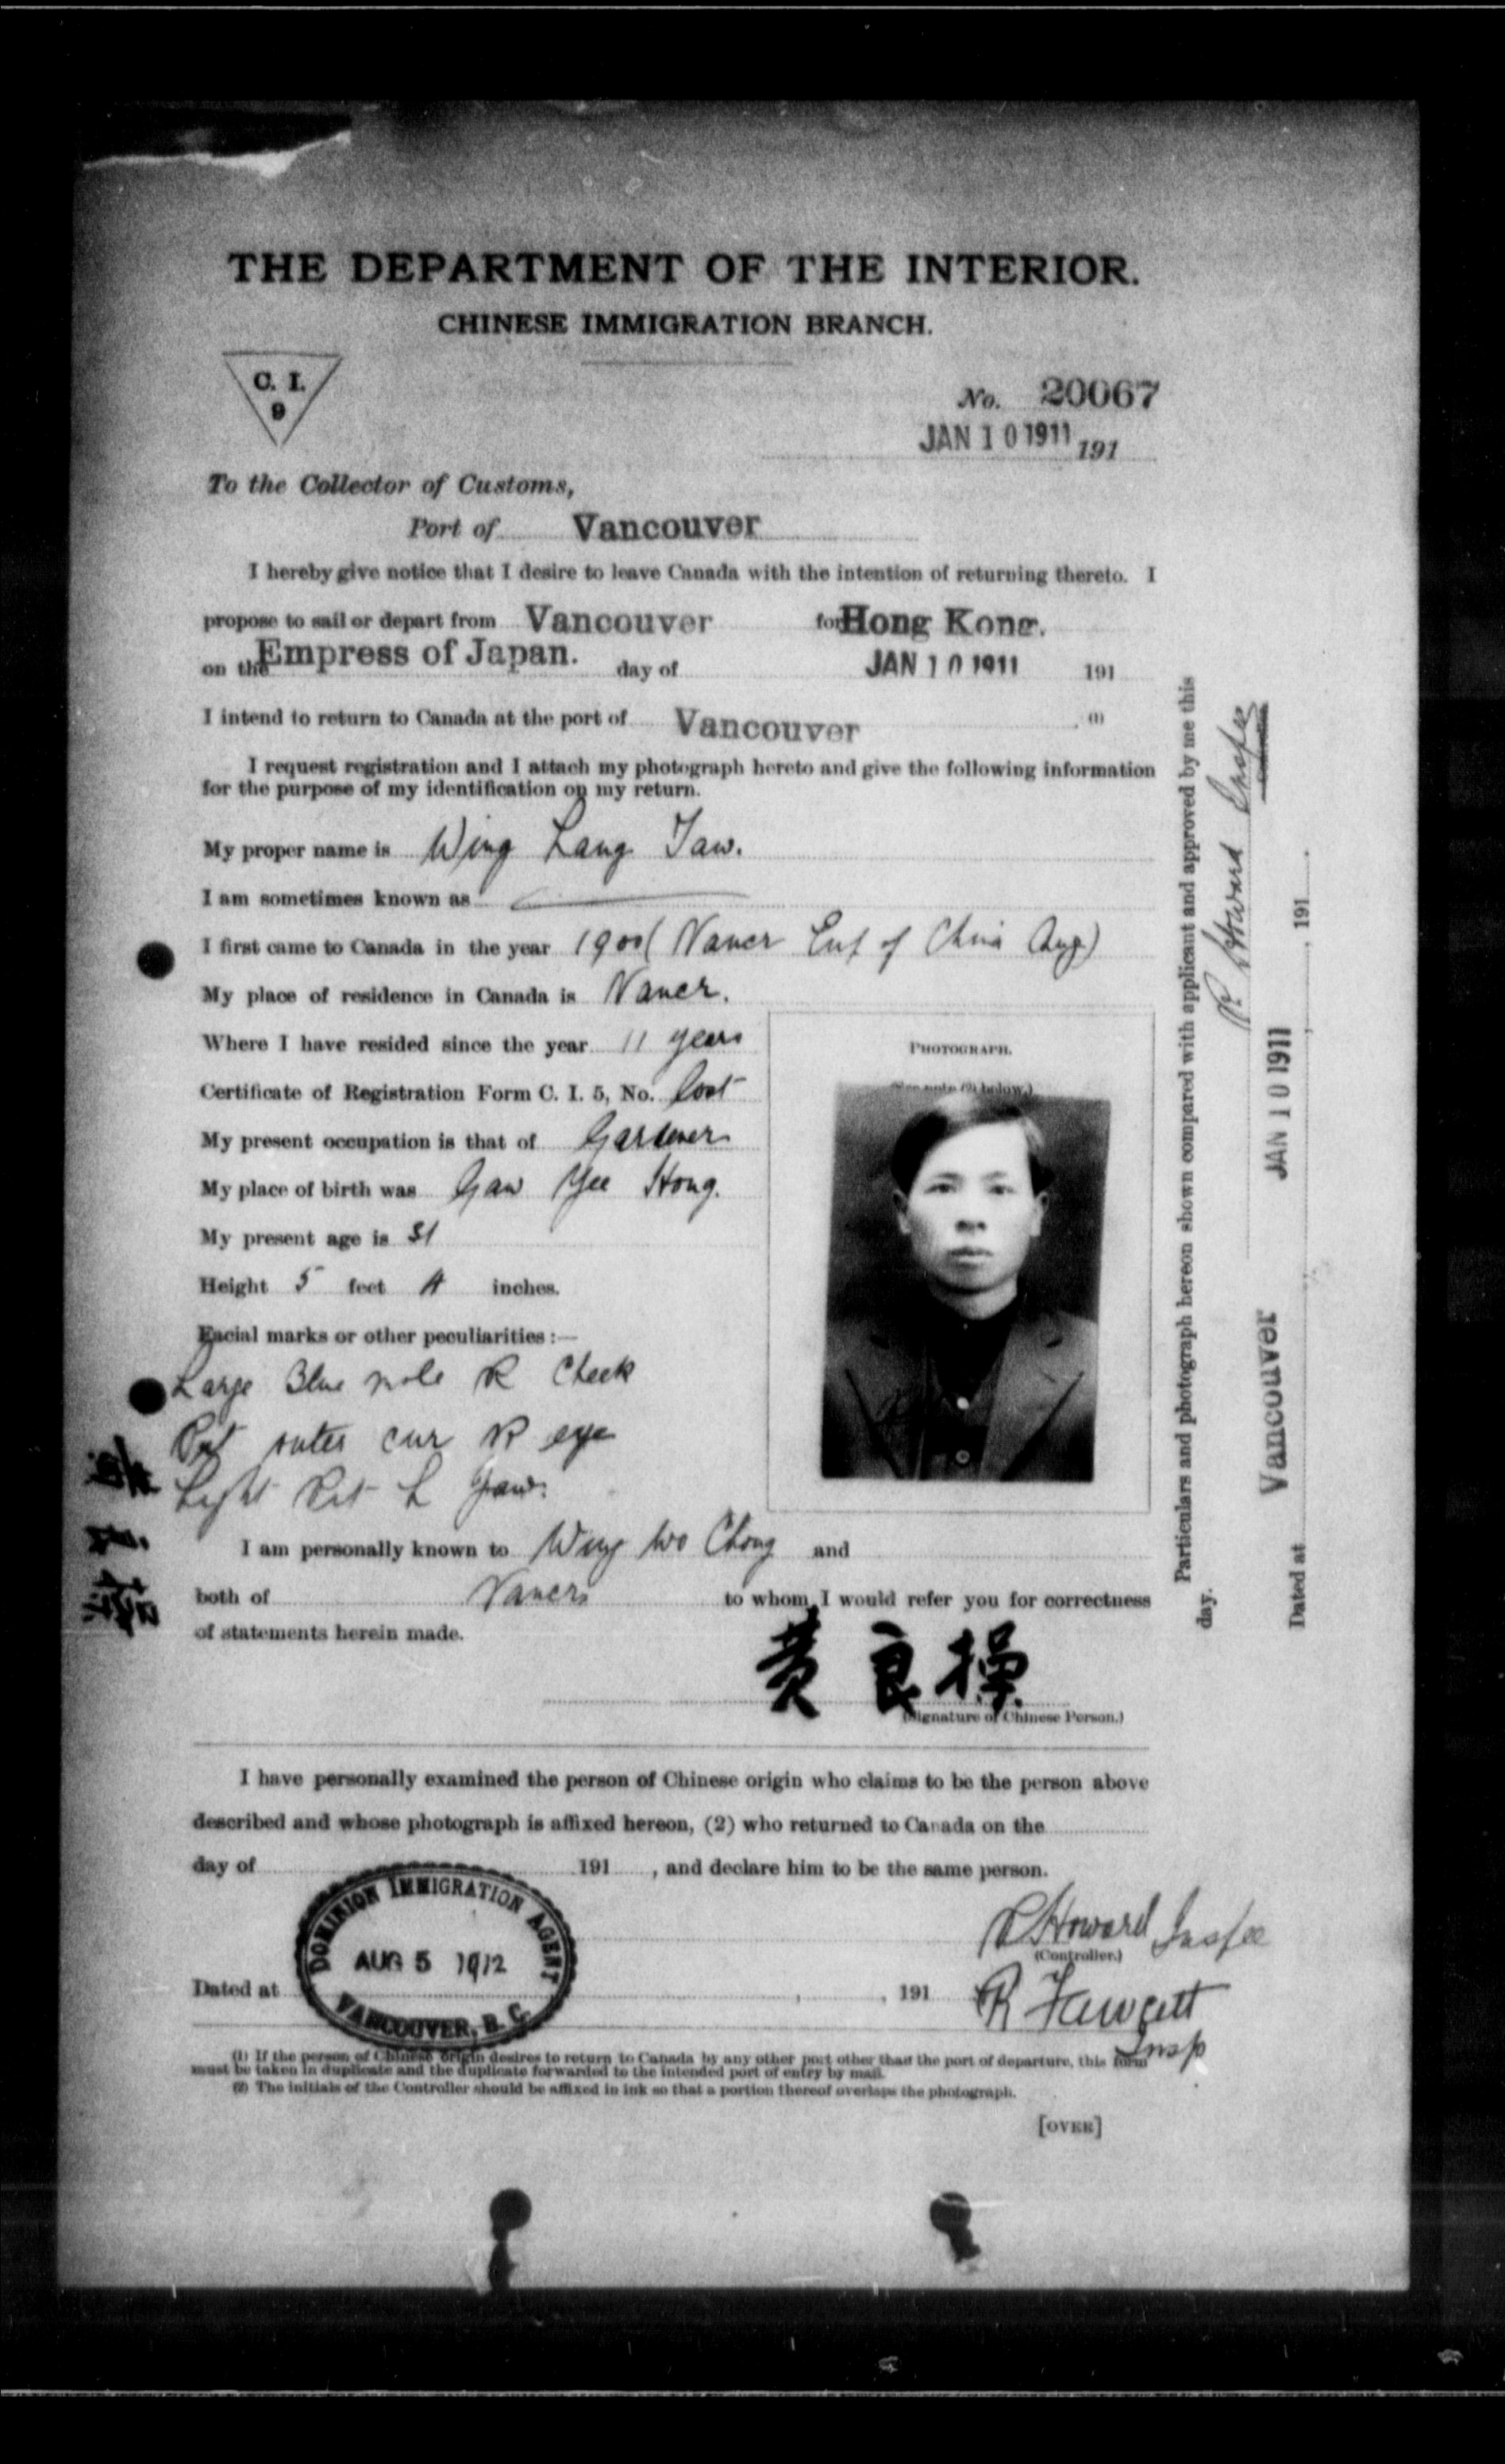 THE DEPARTMENT OF THE INTERIOR.
CHINESE IMMIGRATION BRANCH.
C. I.
9
No. 20067
JAN 10 1911 191
To the Collector of Customs,
Port of Vancouver
I hereby give notice that I desire to leave Canada with the intention of returning thereto. I
propose to sail or depart from Vancouver for Hong Kong.
on the Empress of Japan. day of JAN 10 1911 191
I intend to return to Canada at the port of Vancouver (1)
I request registration and I attach my photograph hereto and give the following information
for the purpose of my identification on my return.
My proper name is Wing Lang Taw.
I am sometimes known as
I first came to Canada in the year 1900 (Vancr Em of China Aug)
My place of residence in Canada is Vancr.
Where I have resided since the year 11 years
Certificate of Registration Form C. I. 5, No. lost
My present occupation is that of Gardener
My place of birth was Gaw Yee Hong.
My present age is 31
Height 5 feet 4 inches.
Facial marks or other peculiarities :—
Large Blue mole R Cheek
Pit outer cur R eye
Light Pit L Jaw.
PHOTOGRAPH.
(See note (2) below.)
I am personally known to Wing Wo Chong and
both of Vancr to whom I would refer you for correctness
of statements herein made.
黄良操
(Signature of Chinese Person.)
I have personally examined the person of Chinese origin who claims to be the person above
described and whose photograph is affixed hereon, (2) who returned to Canada on the
day of 191 , and declare him to be the same person.
R Howard Insp
(Controller.)
DOMINION IMMIGRATION AGENT
AUG 5 1912
VANCOUVER, B. C.
Dated at , 191
R Fawcett
Insp
(1) If the person of Chinese origin desires to return to Canada by any other port other than the port of departure, this form
must be taken in duplicate and the duplicate forwarded to the intended port of entry by mail.
(2) The initials of the Controller should be affixed in ink so that a portion thereof overlaps the photograph.
[OVER]
Particulars and photograph hereon shown compared with applicant and approved by me this
day.
R Howard Insp
Dated at Vancouver JAN 10 1911 , 191